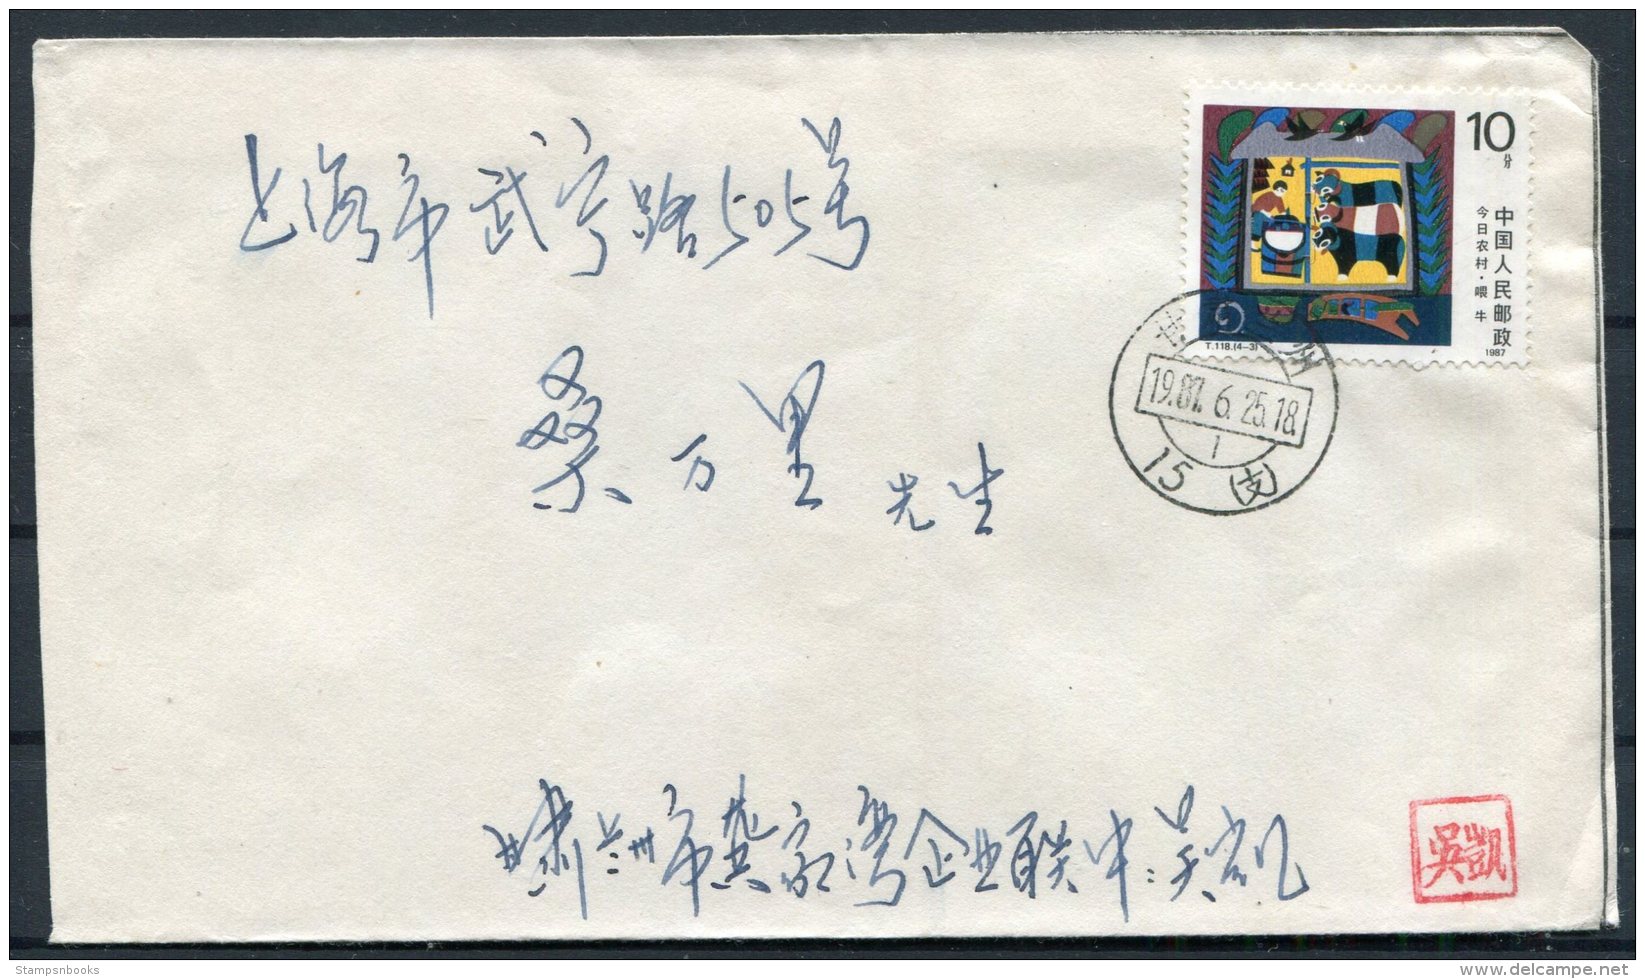 上海市武宁路505号
桑万里 先生
甘肃兰州市龚家湾企业联中：吴凯
吳凯
10分
中国人民邮政
今日农村·喂牛
T.118.(4-3)
1987
州
1987.6.25.18
1
15(支)
Stampsnbooks
http://www.delcampe.net